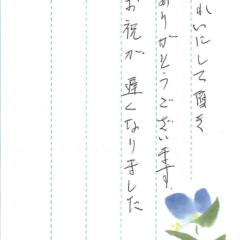 れいにして頂き
ありがとうございます。
お祝が遅くなりました